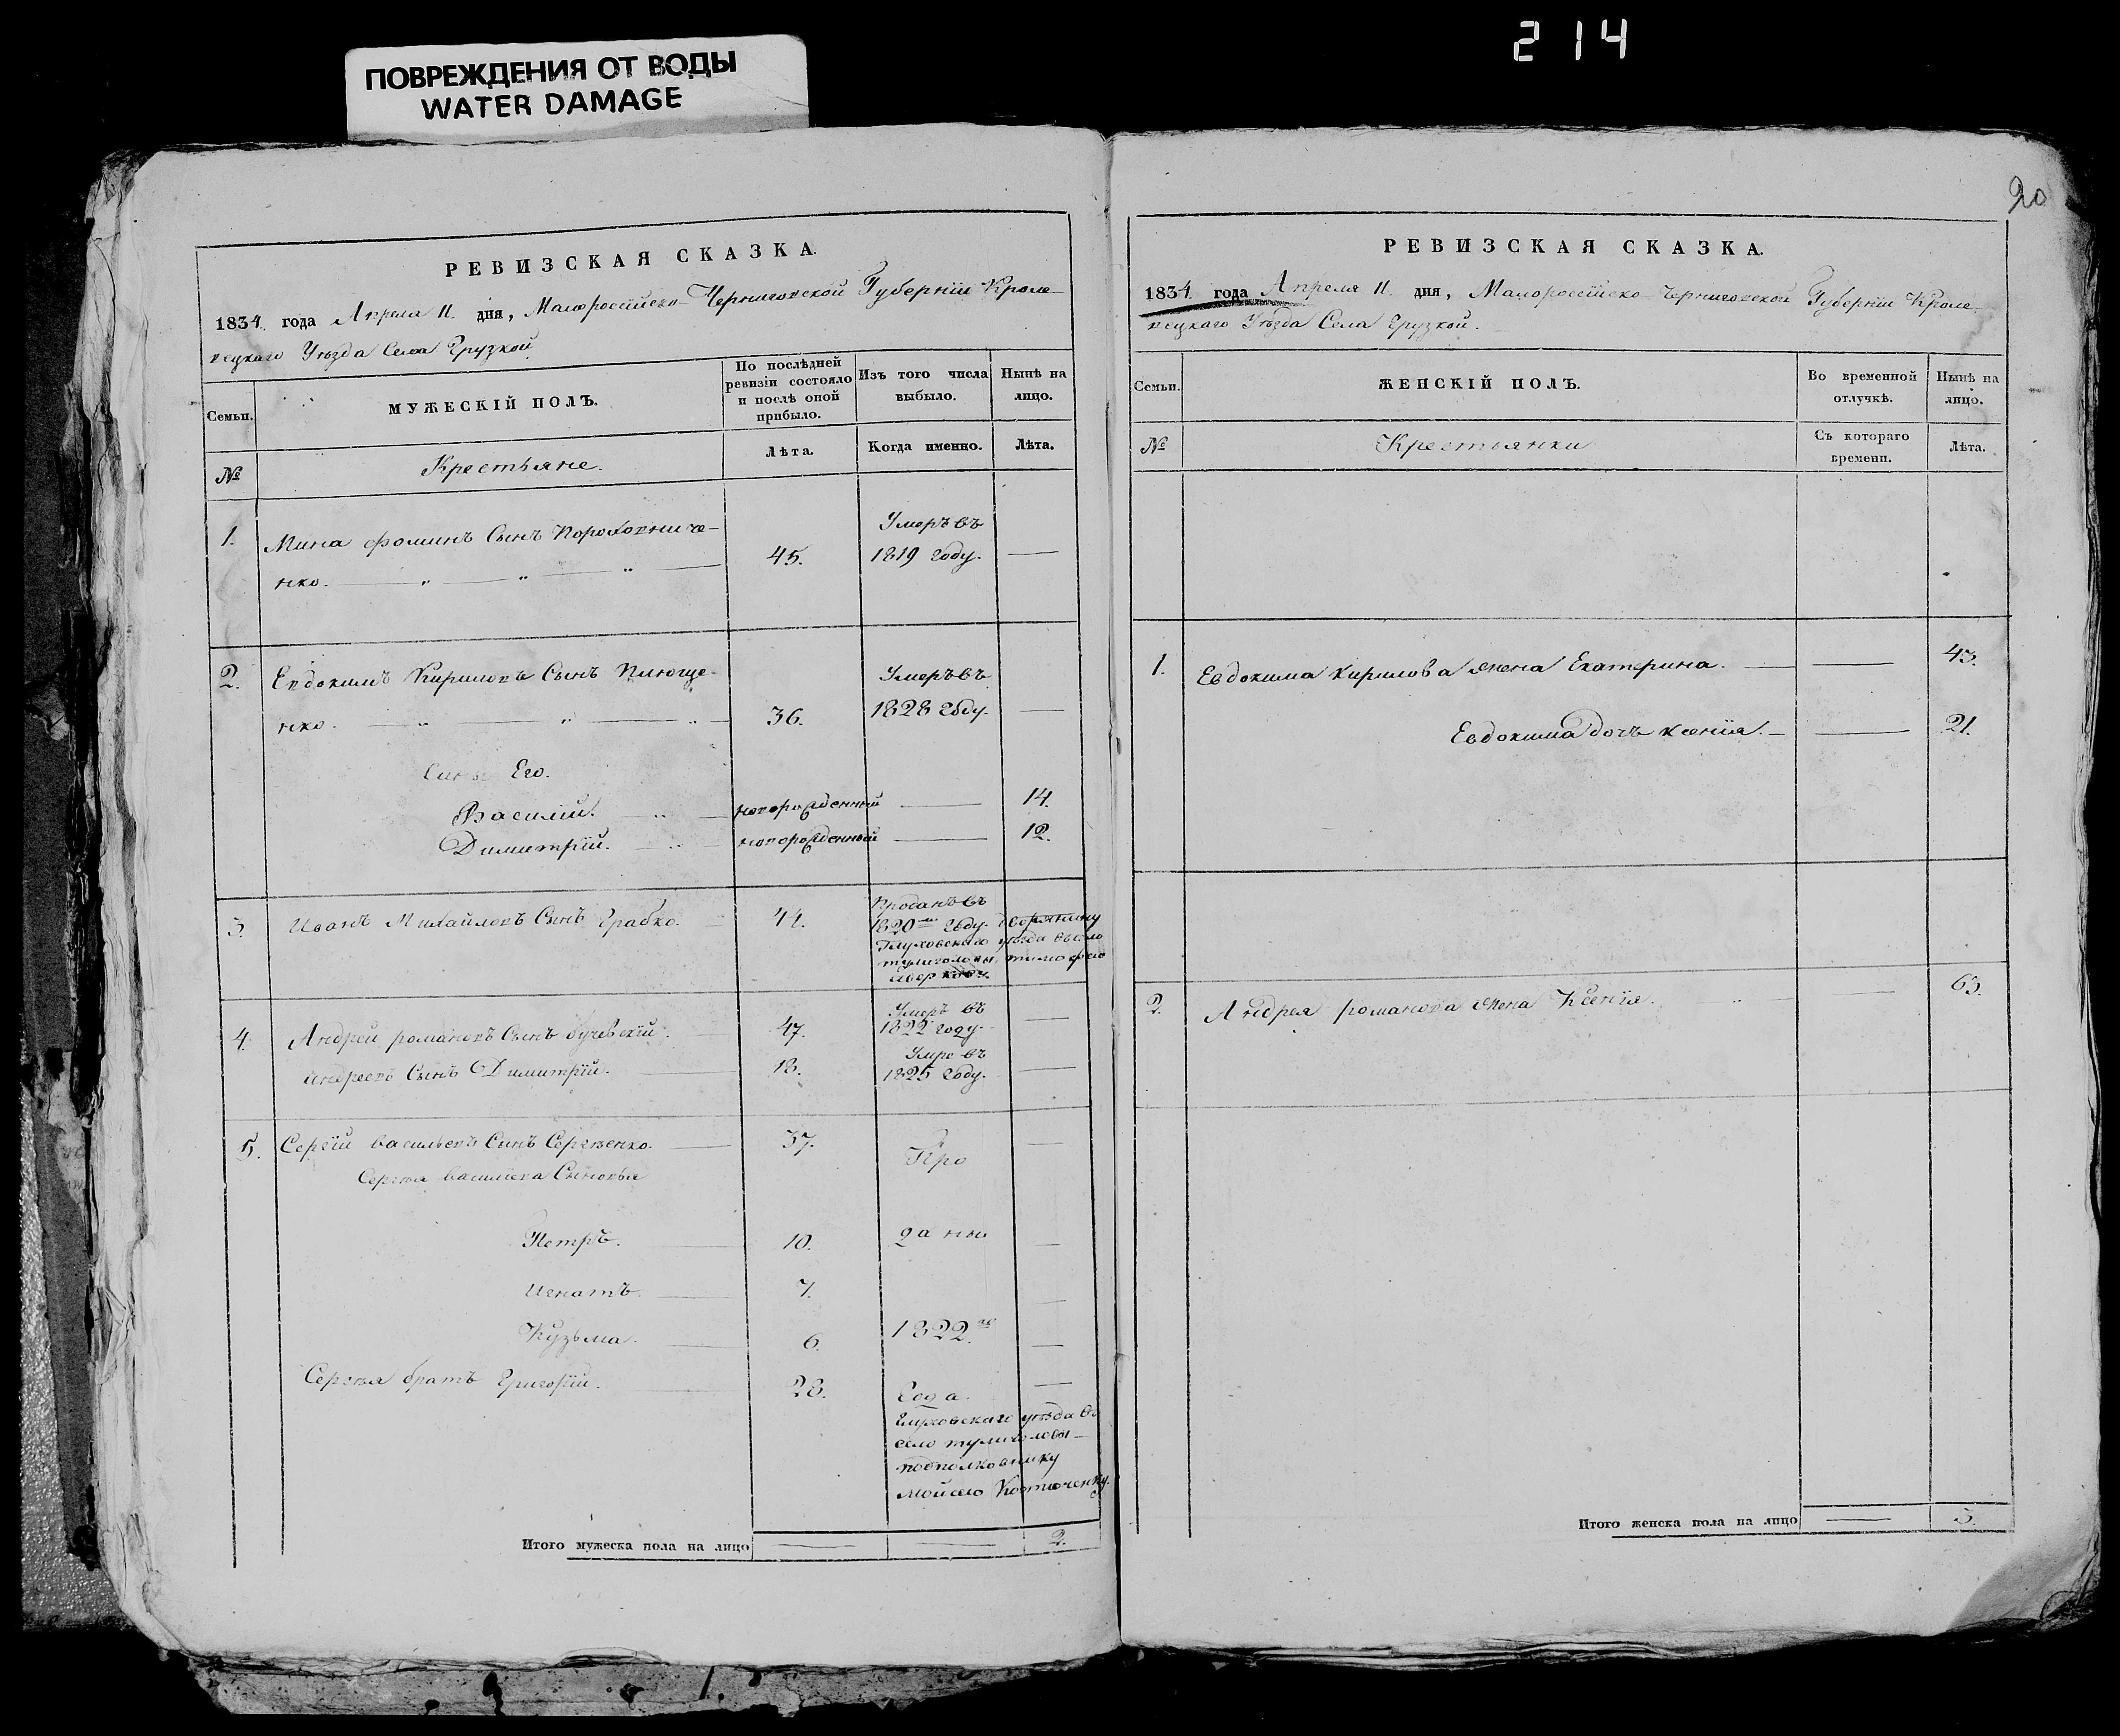 214
ПОВРЕЖДЕНИЯ ОТ ВОДЫ
WATER DAMAGE
РЕВИЗСКАЯ СКАЗКА.
1834 года Апреля 11 дня, Малороссійско-Черниговской Губерніи Кроле-
вецкаго Уѣзда Села Грузкой
Семьи.
МУЖЕСКІЙ ПОЛЪ.
По послѣдней ревизіи состояло и послѣ оной прибыло.
Изъ того числа выбыло.
Нынѣ на лицо.
№
Крестьяне.
Лѣта.
Когда именно.
Лѣта.
1. Мина Фоминъ Сынъ Пороховниче-
нко. 45. Умеръ въ
1819 году.
2. Евдокимъ Кириловъ Сынъ Плюще-
нко. 36. Умеръ въ
1828 году.
Сины Его.
Василий. новорожденный 14.
Димитрій. новорожденный 12.
3. Иванъ Михайловъ Сынъ Грабко. 44. Проданъ въ
1820 году дворянину
Глуховскаго уѣзда въ село
тулиголовы тимофею
4. Андрей романовъ Сынъ 47. Умеръ въ
1822 году.
Андреевъ Сынъ Димитрій. 18. Умре въ
1825 году.
5. Сергій васильевъ Сынъ Сергѣенко. 37. Про
Сергѣя василиева Сыновья
Петръ. 10. даны
Игнатъ. 7.
Кузьма. 6. 1822го
Сергѣя братъ Григорій. 28. Года.
Глуховскаго уѣзда въ
село тулиголовы
подполковнику
Мойсею Костюченку.
Итого мужеска пола на лицо 2.
20
РЕВИЗСКАЯ СКАЗКА.
1834 года Апреля 11 дня, Малороссійско-Черниговской Губерніи Кроле-
вецкаго Уѣзда Села Грузкой.
Семьи.
ЖЕНСКІЙ ПОЛЪ.
Во временной отлучкѣ.
Нынѣ на лицо.
№
Крестьянки
Съ котораго времени.
Лѣта.
1. Евдокима Кирилова жена Екатерина. 43.
Евдокима дочь Ксенія. 21.
2. Андрея романова жена Ксенія. 63.
Итого женска пола на лицо 3.